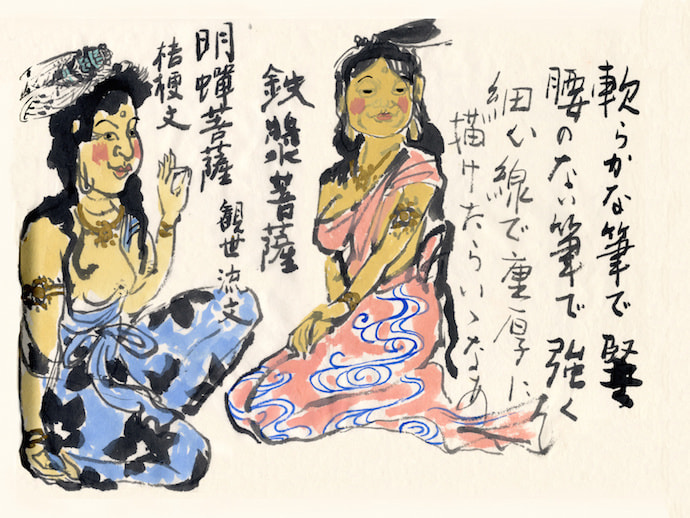 軟らかな筆で 堅
腰のない筆で 強く
細い線で重厚に
描けたらいゝなあ
鉄漿菩薩
観世流文
明蟬菩薩
桔梗文